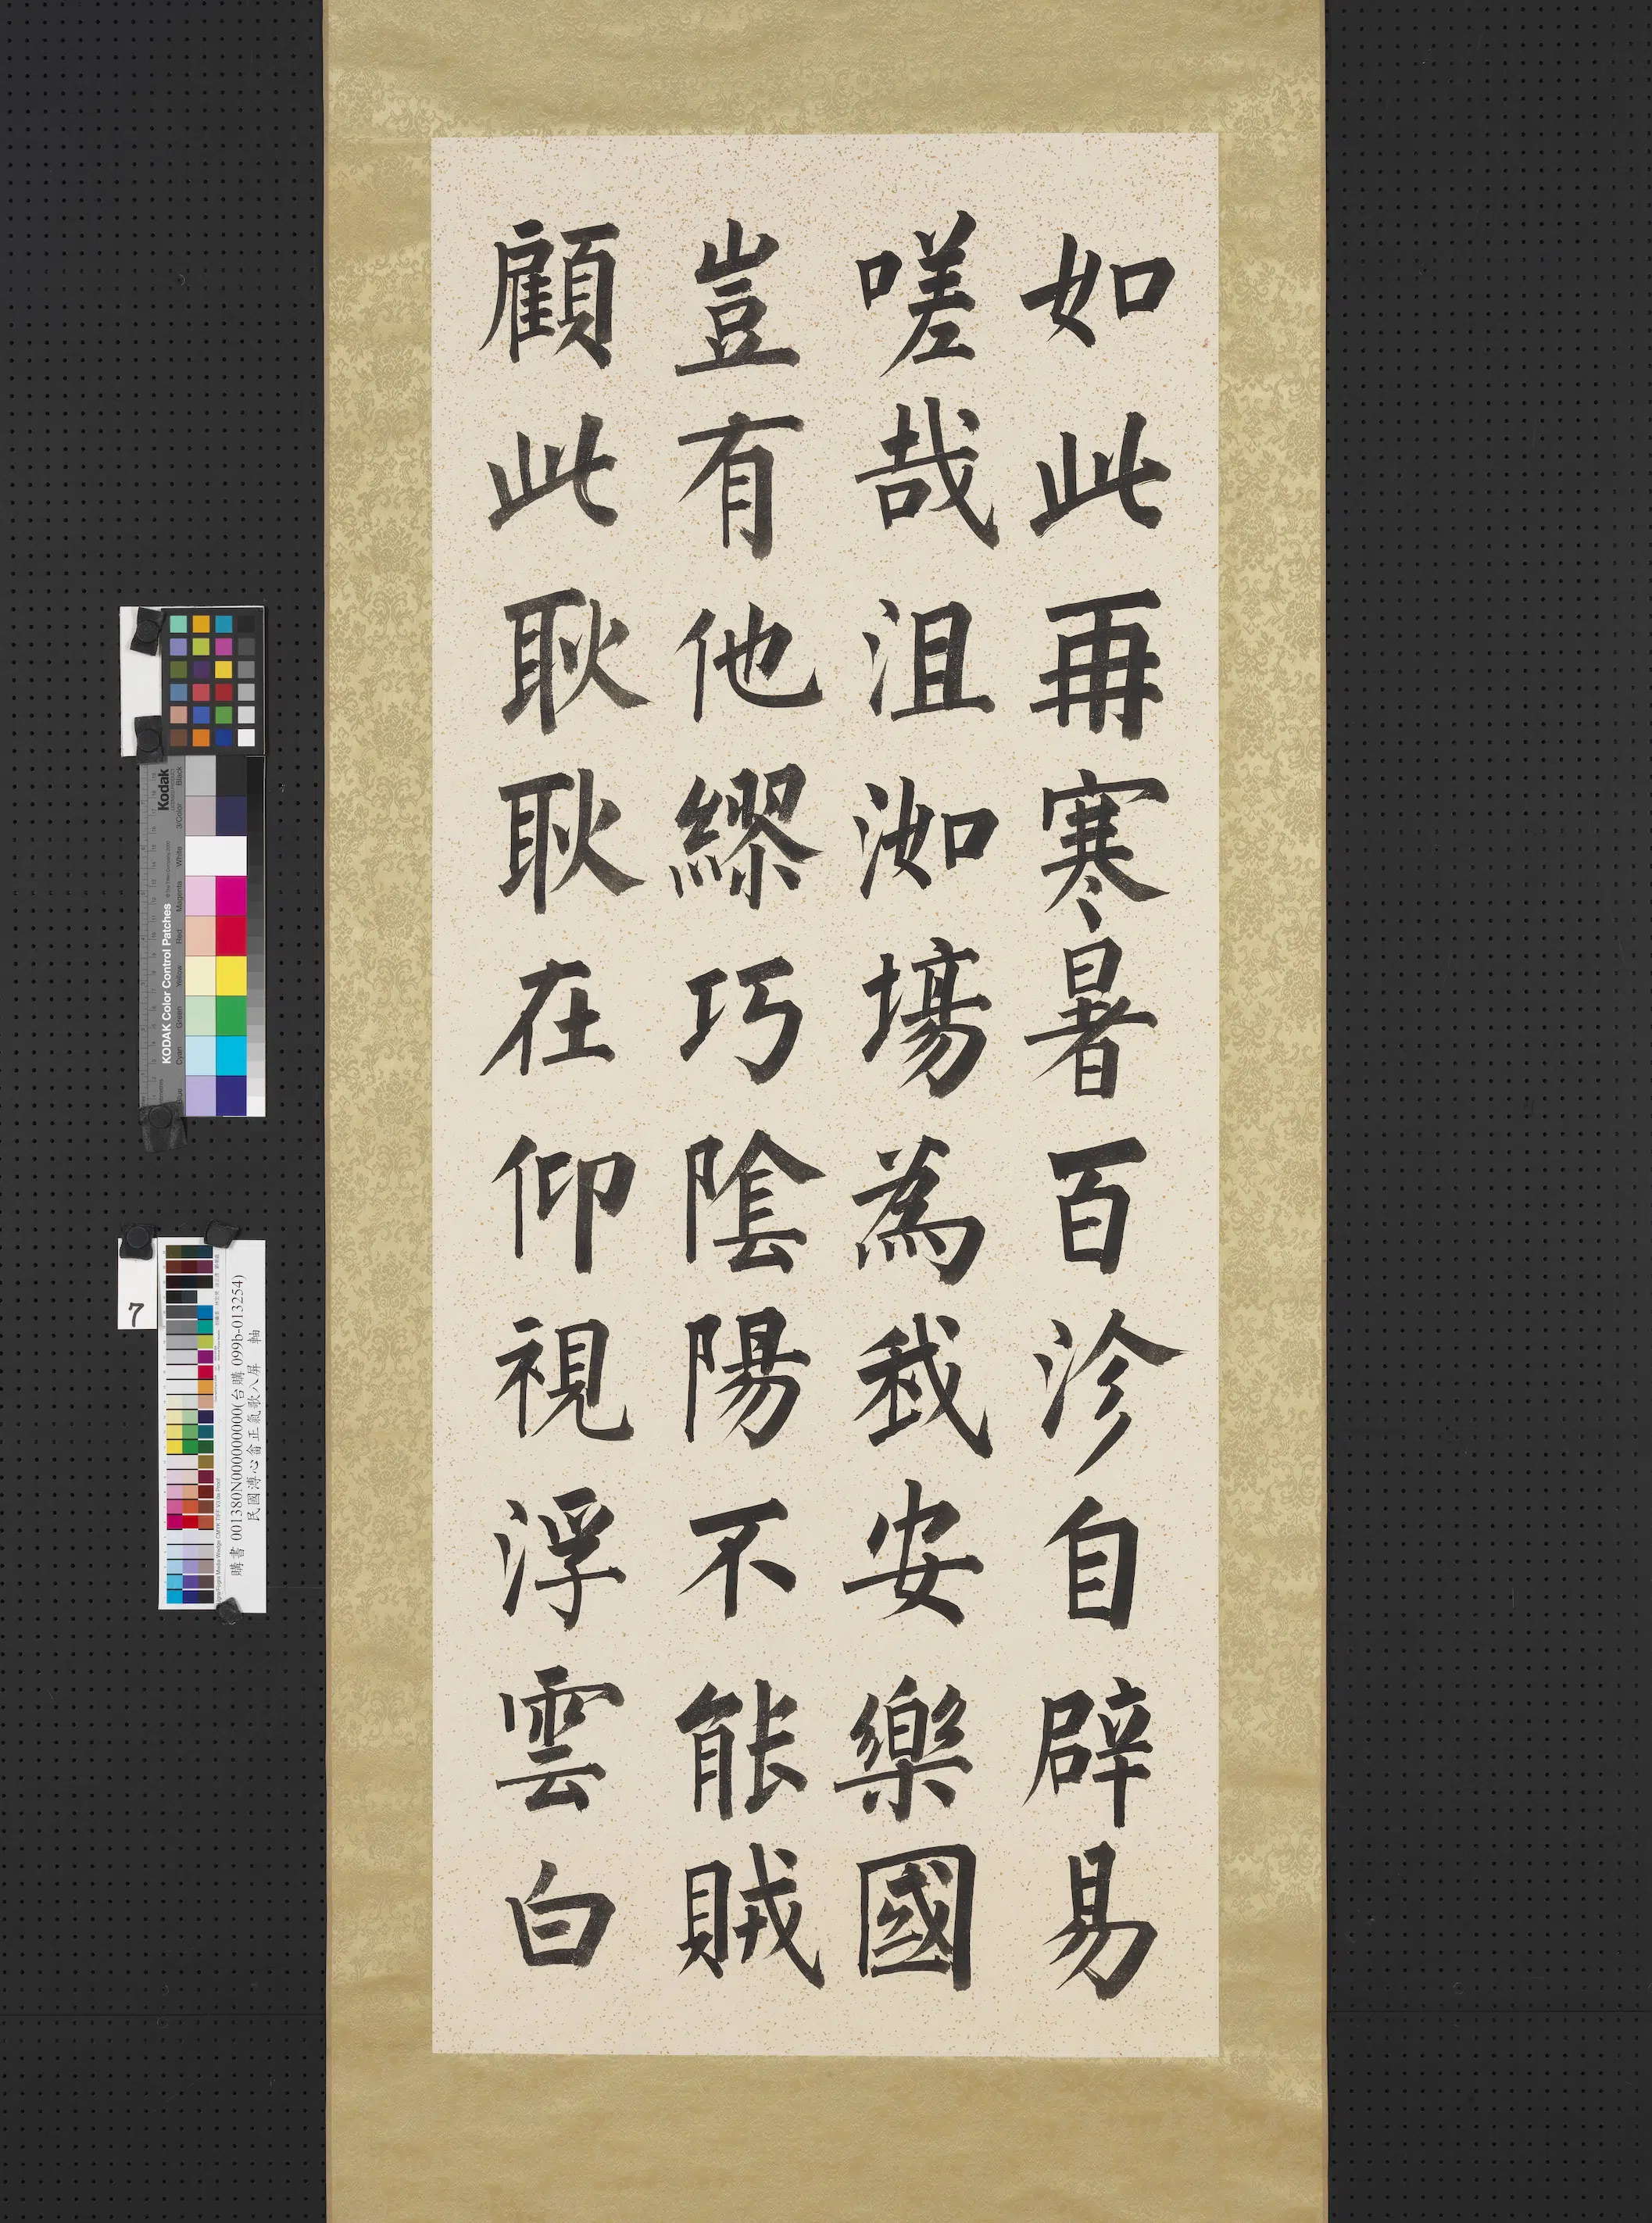 如此再寒暑百沴自辟易
嗟哉沮洳塲為我安樂國
豈有他繆巧陰陽不能賊
顧此耿耿在仰視浮雲白
Kodak
KODAK Color Control Patches
Blue Cyan Green Yellow Red Magenta White 3/Color Black
7
購書 001380N000000000(台購 099b-013254)
民國溥心畬正氣歌八屏 軸